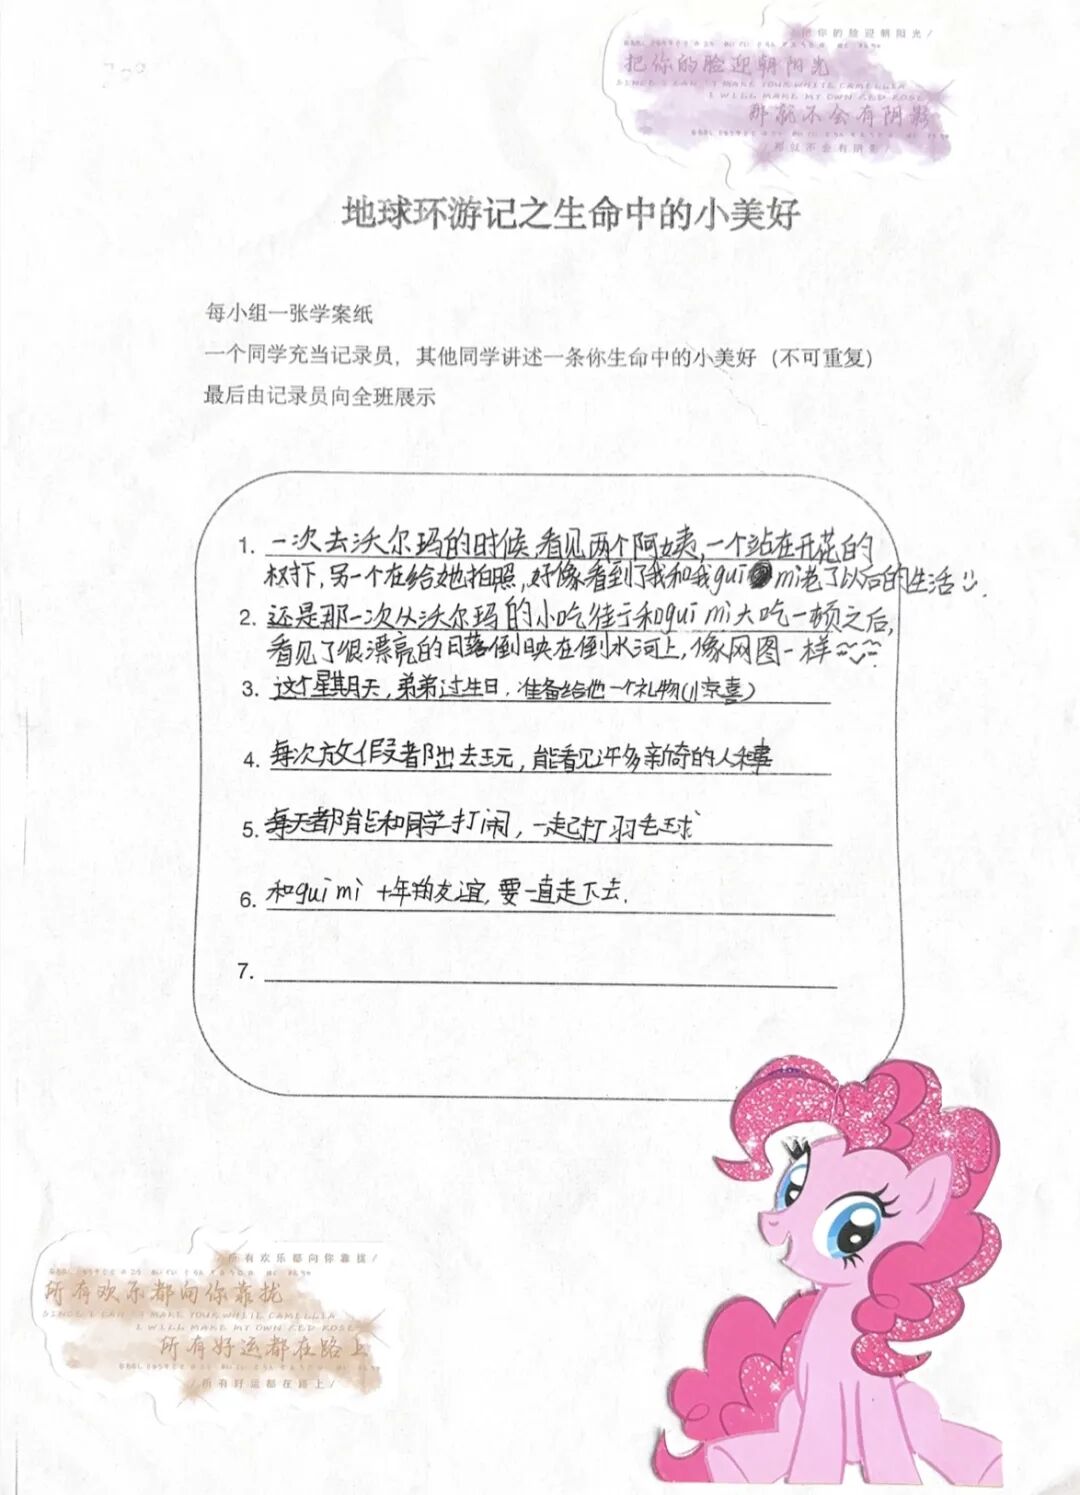 把你的脸迎朝阳光/
把你的脸迎朝阳光
SINCE I CAN'T MAKE YOUR WHITE CAMELLIA
I WILL MAKE MY OWN RED ROSE
那就不会有阴影
/那就不会有阴影/
地球环游记之生命中的小美好
每小组一张学案纸
一个同学充当记录员，其他同学讲述一条你生命中的小美好（不可重复）
最后由记录员向全班展示
1. 一次去沃尔玛的时候,看见两个阿姨,一个站在开花的
树下,另一个在给她拍照,好像看到了我和我gui mi老了以后的生活
2. 还是那一次从沃尔玛的小吃街于和gui mi大吃一顿之后,
看见了很漂亮的日落倒映在倒水河上,像网图一样
3. 这个星期天,弟弟过生日,准备给他一个礼物(小惊喜)
4. 每次放假都出去玩,能看见许多新奇的人和事
5. 每天都能和同学打闹,一起打羽毛球
6. 和gui mi 十年的友谊,要一直走下去.
7.
/所有欢乐都向你靠拢/
所有欢乐都向你靠拢
SINCE I CAN'T MAKE YOUR WHITE CAMELLIA
I WILL MAKE MY OWN RED ROSE
所有好运都在路上
/所有好运都在路上/